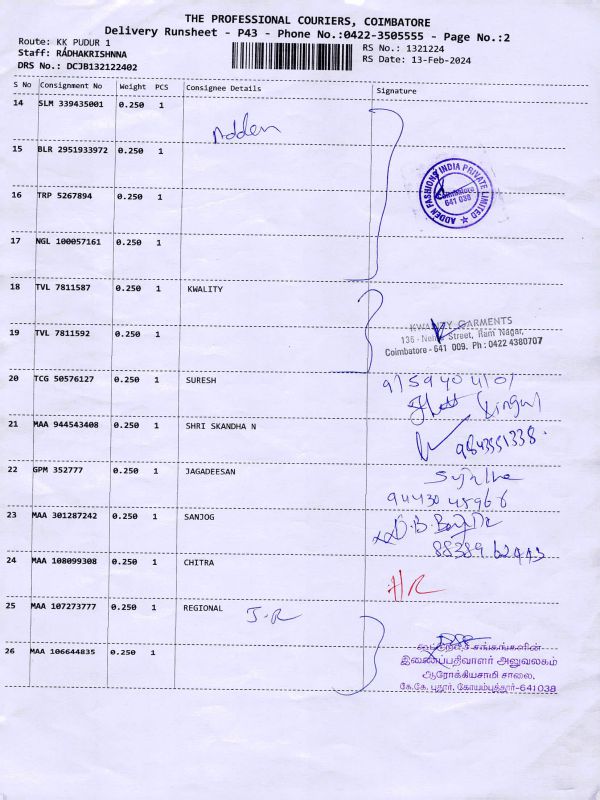 THE PROFESSIONAL COURIERS, COIMBATORE
Delivery Runsheet - P43 - Phone No.:0422-3505555 - Page No.:2
Route: KK PUDUR 1
RS No.: 1321224
Staff: RADHAKRISHNNA
RS Date: 13-Feb-2024
DRS No.: DCJB132122402
S No Consignment No Weight PCS Consignee Details Signature
14 SLM 339435001 0.250 1
Adden
15 BLR 2951933972 0.250 1
ADDEN FASHIONS INDIA PRIVATE LIMITED
Coimbatore
641 038
16 TRP 5267894 0.250 1
17 NGL 100057161 0.250 1
18 TVL 7811587 0.250 1 KWALITY
KWALITY GARMENTS
136 - Nehru Street, Ram Nagar,
Coimbatore - 641 009. Ph : 0422 4380707
19 TVL 7811592 0.250 1
20 TCG 50576127 0.250 1 SURESH
9159404101
21 MAA 944543408 0.250 1 SHRI SKANDHA N
9843551338
22 GPM 352777 0.250 1 JAGADEESAN
Sujitha
9443045966
23 MAA 301287242 0.250 1 SANJOG
8838962443
24 MAA 108099308 0.250 1 CHITRA
HR
25 MAA 107273777 0.250 1 REGIONAL J-R
26 MAA 106644835 0.250 1
இணைப்பதிவாளர் அலுவலகம்
ஆரோக்கியசாமி சாலை,
கே.கே. புதூர், கோயம்புத்தூர்-641038